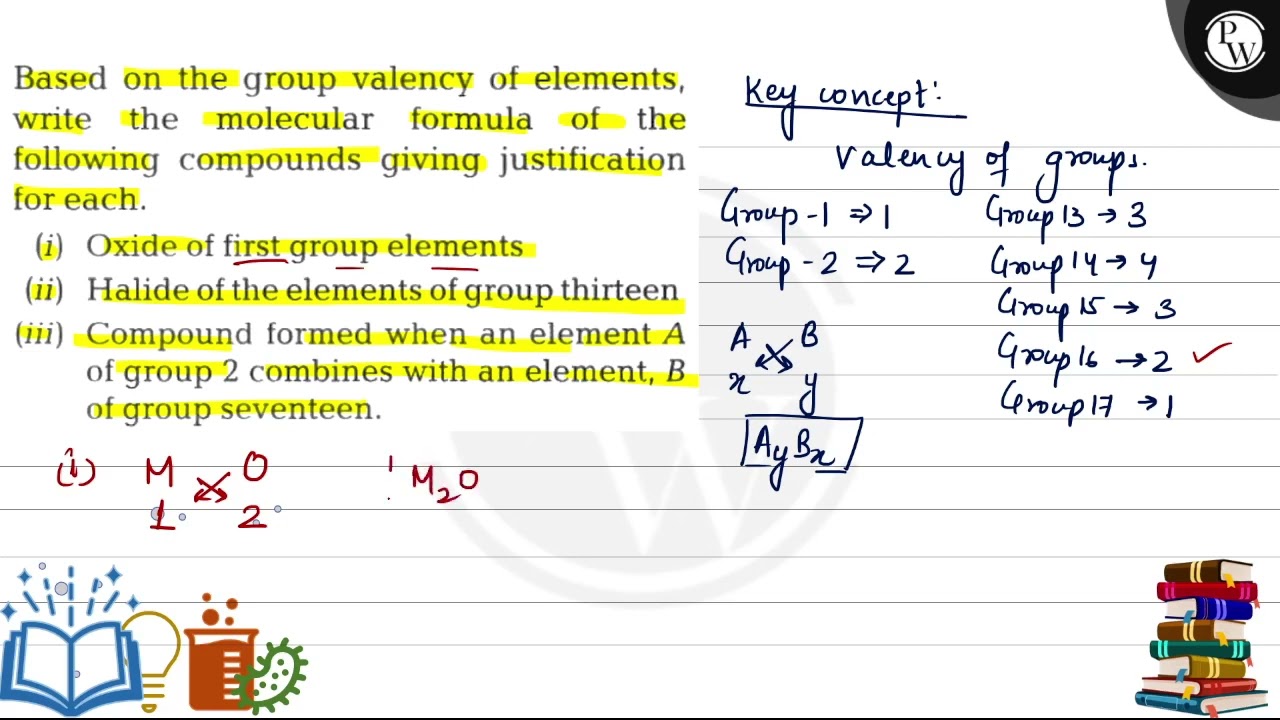 Based on the group valency of elements,
write the molecular formula of the
following compounds giving justification
for each.
(i) Oxide of first group elements
(ii) Halide of the elements of group thirteen
(iii) Compound formed when an element A
of group 2 combines with an element, B
of group seventeen.
(i) M O
1 2
M₂O
Key concept:
Valency of groups.
Group-1 ⇒ 1
Group-2 ⇒ 2
A B
x y
AyBx
Group 13 → 3
Group 14 → 4
Group 15 → 3
Group 16 → 2 ✓
Group 17 → 1
P
W